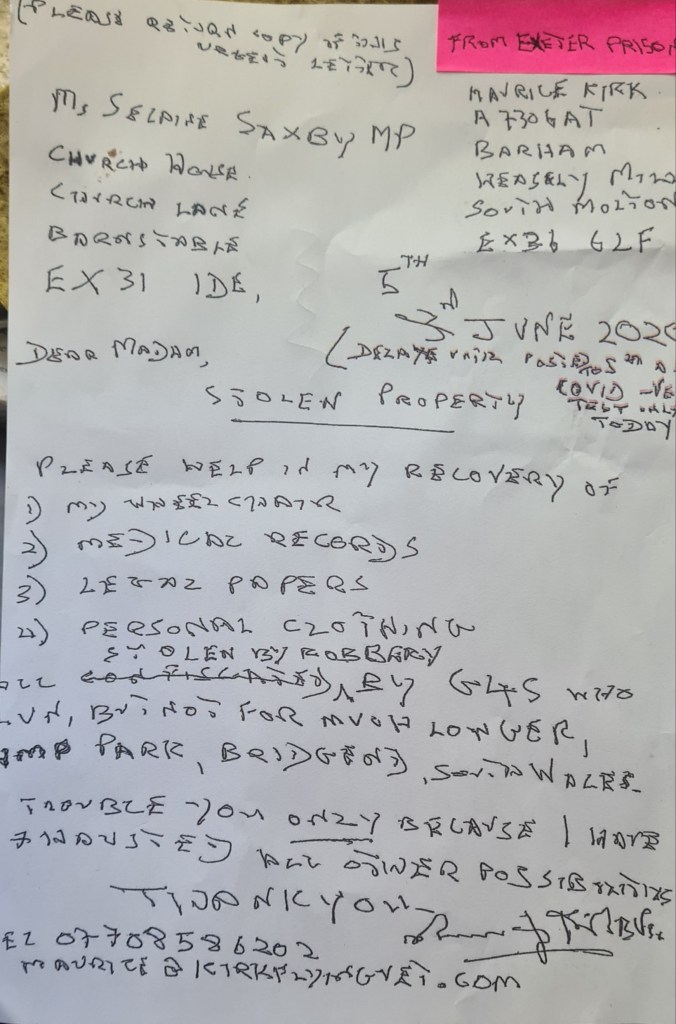 (PLEASE RETURN COPY OF THIS
URGENT LETTER)
FROM EXETER PRISON
MAURICE KIRK
A7306AT
BARHAM
WEASELY MILL
SOUTH MOLTON
EX36 GLF
MS SELAINE SAXBY MP
CHURCH HOUSE
CHURCH LANE
BARNSTABLE
EX31 1DE,
5TH
3RD JUNE 202
DEAR MADAM,
(DELAYED UNTIL POSTED AS A
COVID -VE
TEST ONLY
TODAY
STOLEN PROPERTY
PLEASE HELP IN MY RECOVERY OF
1) MY WHEEL CHAIR
2) MEDICAL RECORDS
3) LEGAL PAPERS
4) PERSONAL CLOTHING
STOLEN BY ROBBERY
ALL CONFISCATED, BY G4S WHO
RUN, BUT NOT FOR MUCH LONGER,
PARK, BRIDGEND, SOUTH WALES.
TROUBLE YOU ONLY BECAUSE I HAVE
EXHAUSTED ALL OTHER POSSIBILITIES
THANK YOU
EL 07708586202
MAURICE@KIRKFLYINGVET.COM